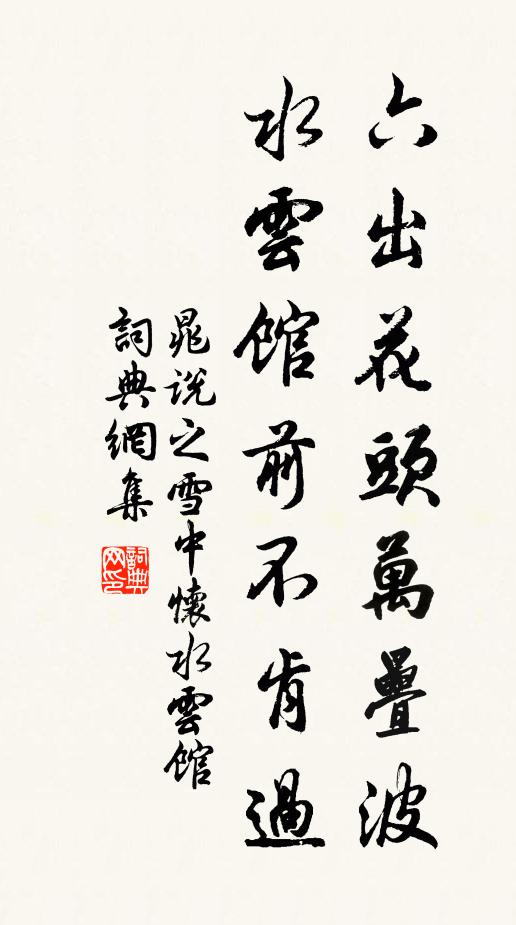 六出花頭萬疊波
水雲館前不肯過
晁說之雪中懷水雲館
詞典網集
詞典网印